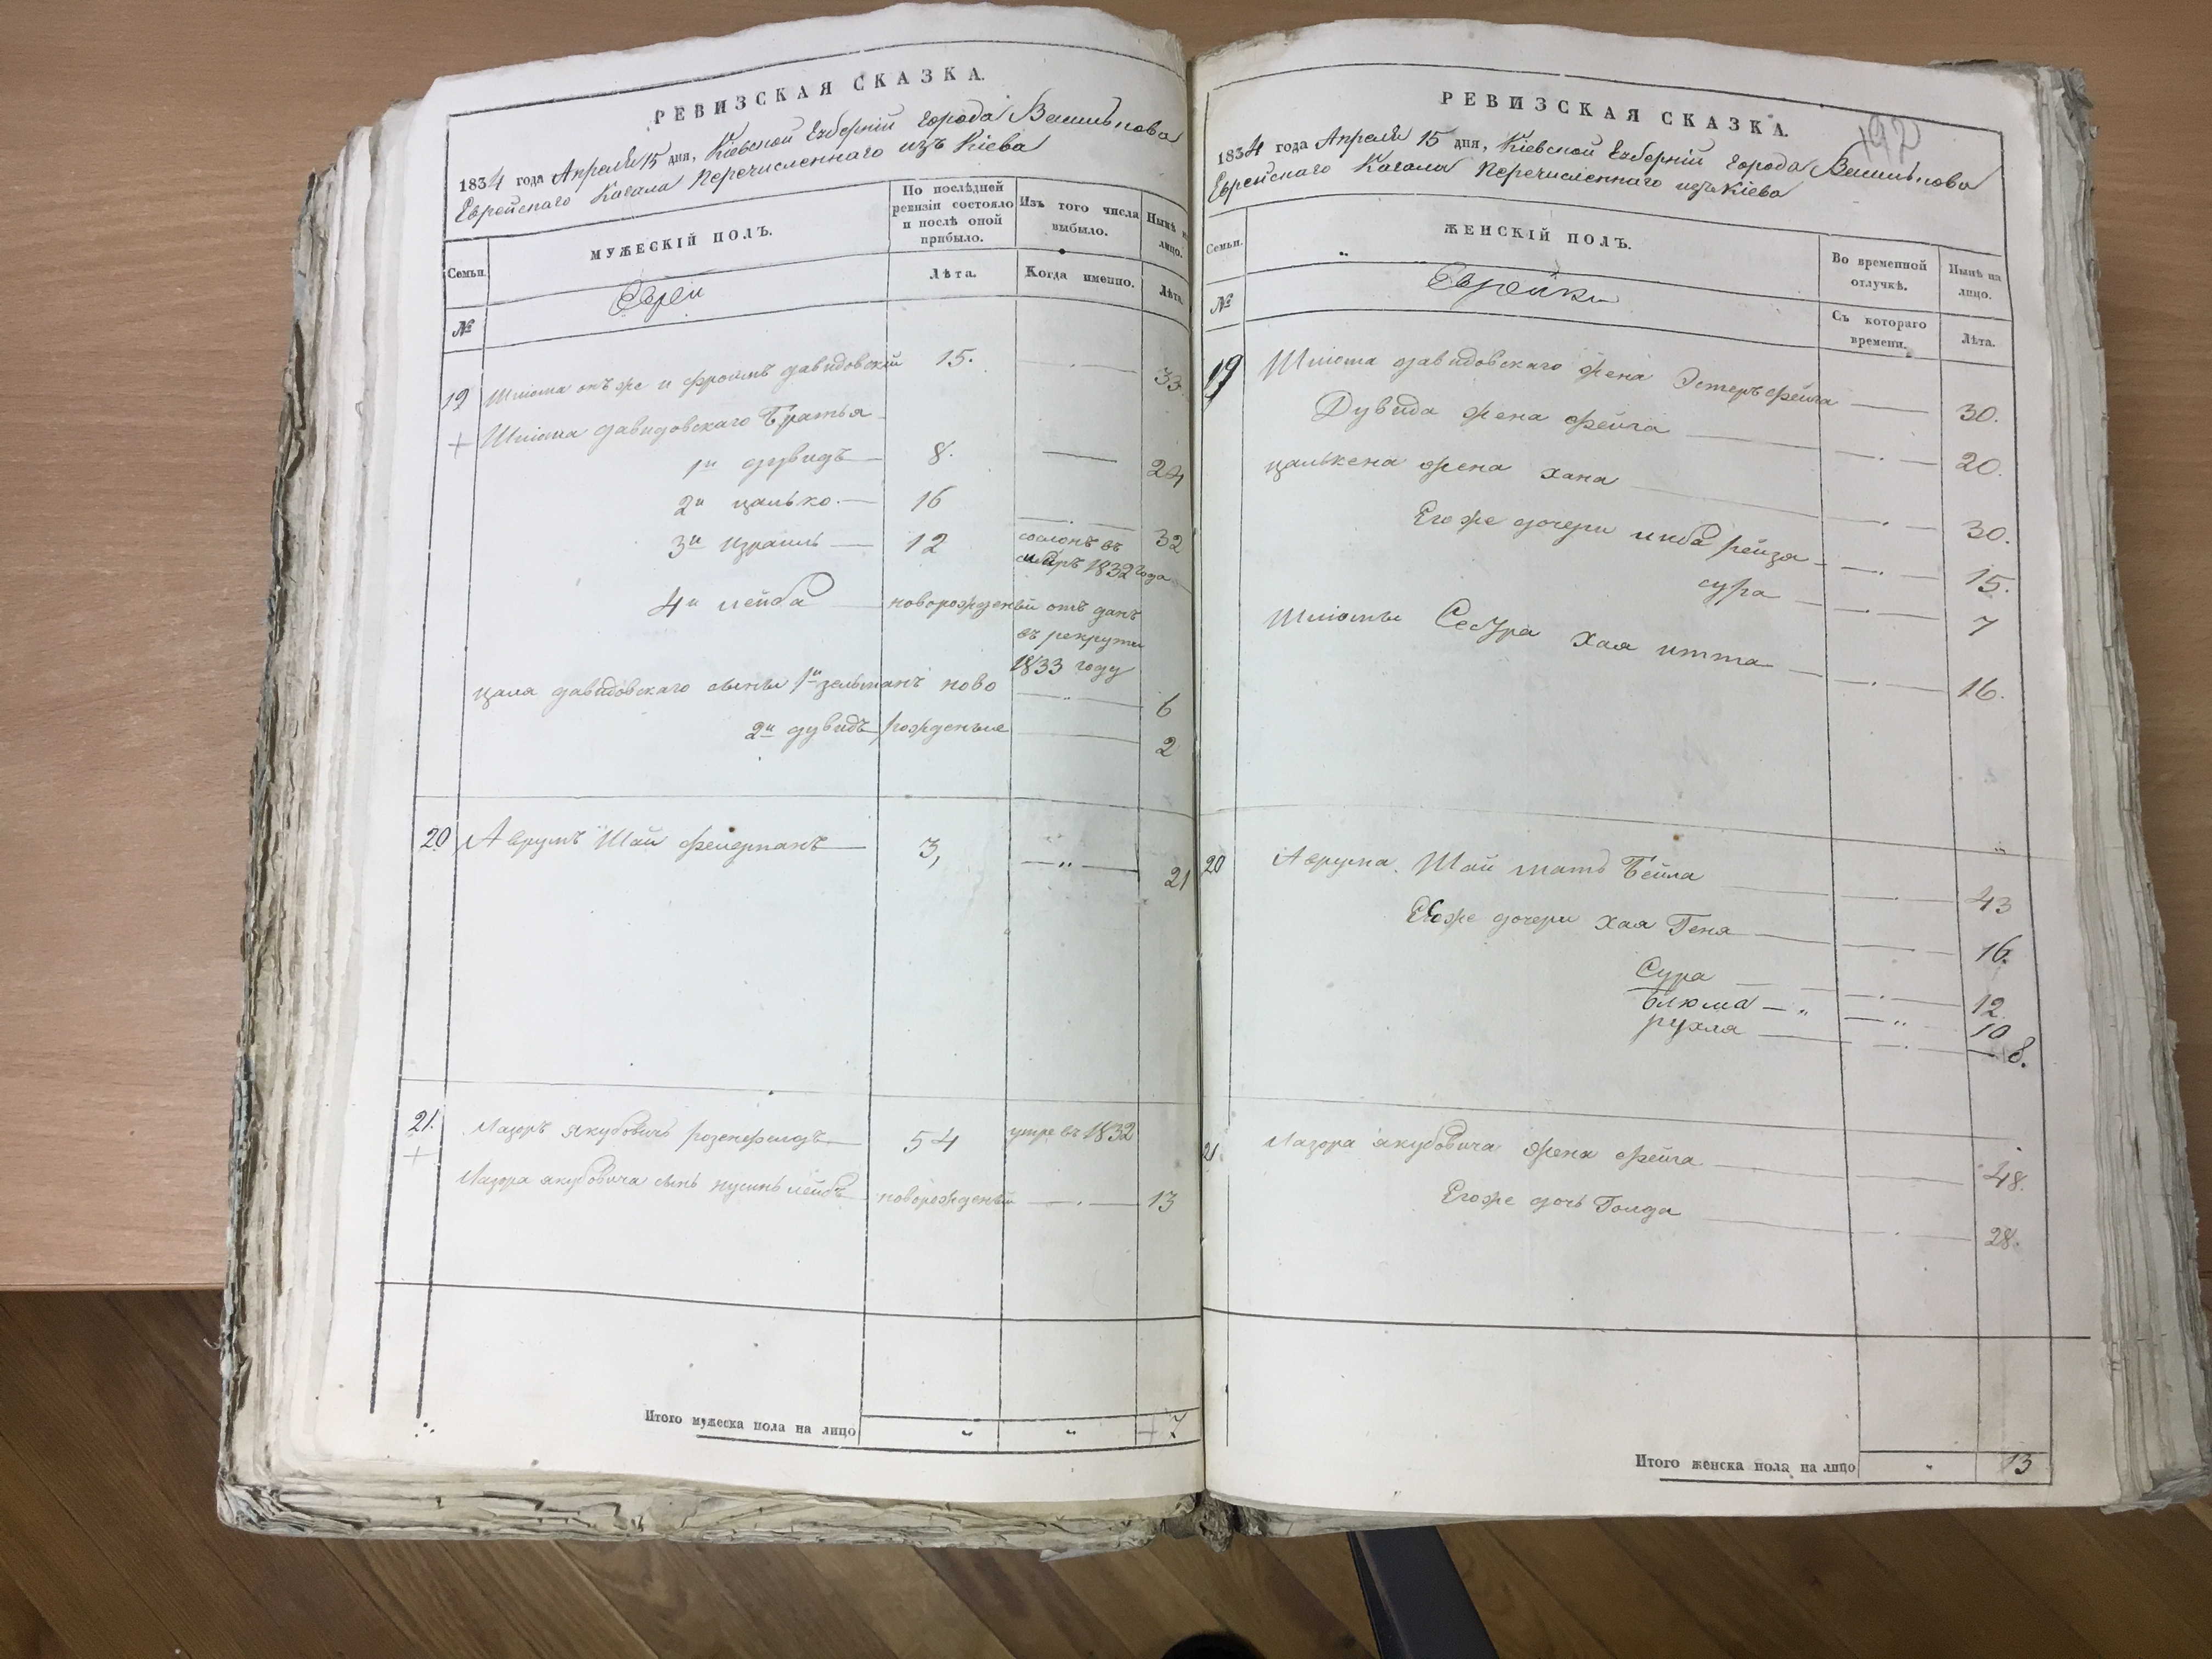 РЕВИЗСКАЯ СКАЗКА.
1834 года Апреля 15 дня, Кіевской Губерніи города Василькова
Еврейскаго Кагала Перечисленнаго изъ Кіева
Семьи.
МУЖЕСКІЙ ПОЛЪ.
По послѣдней ревизіи состояло и послѣ оной прибыло.
Изъ того числа выбыло.
Нынѣ на лицо.
№
Евреи
Лѣта.
Когда именно.
Лѣта.
19 Шліома онъ же и Фроимъ давидовскій 15. 33
+ Шліома давидовскаго Братья
1й дувидъ 8. 24
2й цалько. 16 32
3й Израиль 12 сослонъ въ
сибирь 1832 года
4й лейба новорожденый отъ данъ
въ рекруты
1833 году
цаля давидовскаго сыны 1й зельманъ ново 6
2й дувидъ рожденые 2
20 Аврумъ Шай фельдманъ 3, 21
21. Лазоръ якубовичъ розенфелдъ 54 умре въ 1832
+
Лазора якубовича сынъ нусинъ лейбъ новорожденый 13
Итого мужеска пола на лицо " " 7
192
РЕВИЗСКАЯ СКАЗКА.
1834 года Апреля 15 дня, Кіевской Губерніи города Василькова
Еврейскаго Кагала Перечисленнаго изъ Кіева
Семьи.
ЖЕНСКІЙ ПОЛЪ.
Во временной отлучкѣ.
Нынѣ на лицо.
№
Еврейки
Съ котораго времени.
Лѣта.
19 Шліома давидовскаго жена Эстеръ фейга 30.
Дувида жена фейга 20.
цалькена жена хана 30.
Его же дочери либа рейза 15.
сура 7
Шліомы Сестра хая итта 16.
20 Аврума Шай мать Бейла 43
Егоже дочери хая Геня 16.
Сура 12
блюма " 10
рухля 8.
21 Лазора якубовича жена фейга 48.
Егоже дочь Голда 28.
Итого женска пола на лицо " 13